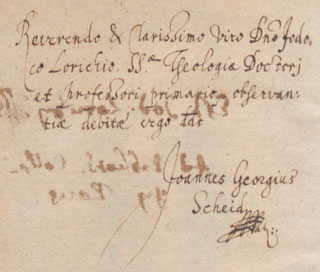 Reverendo & Clarissimo viro Dño Jodo-
co Lorichio. SS.æ Theologiæ Doctorj
et professori primario observan-
tiæ debitæ ergo dds
Joannes Georgius
Scheid